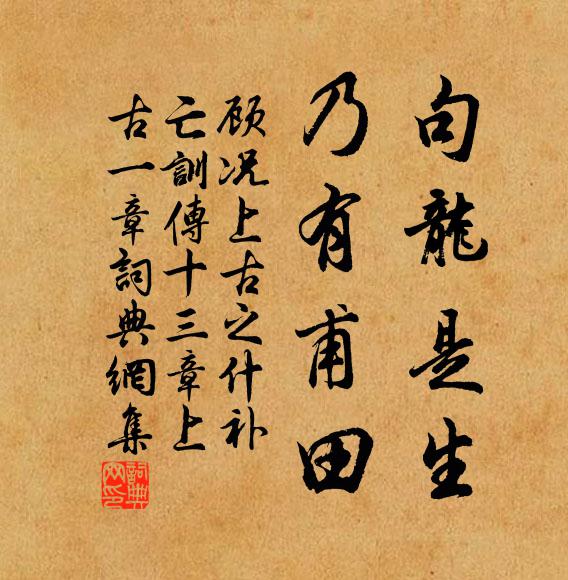 句龍是生
乃有甫田
顾况上古之什补
亡訓傳十三章上
古一章詞典網集
詞典
网印